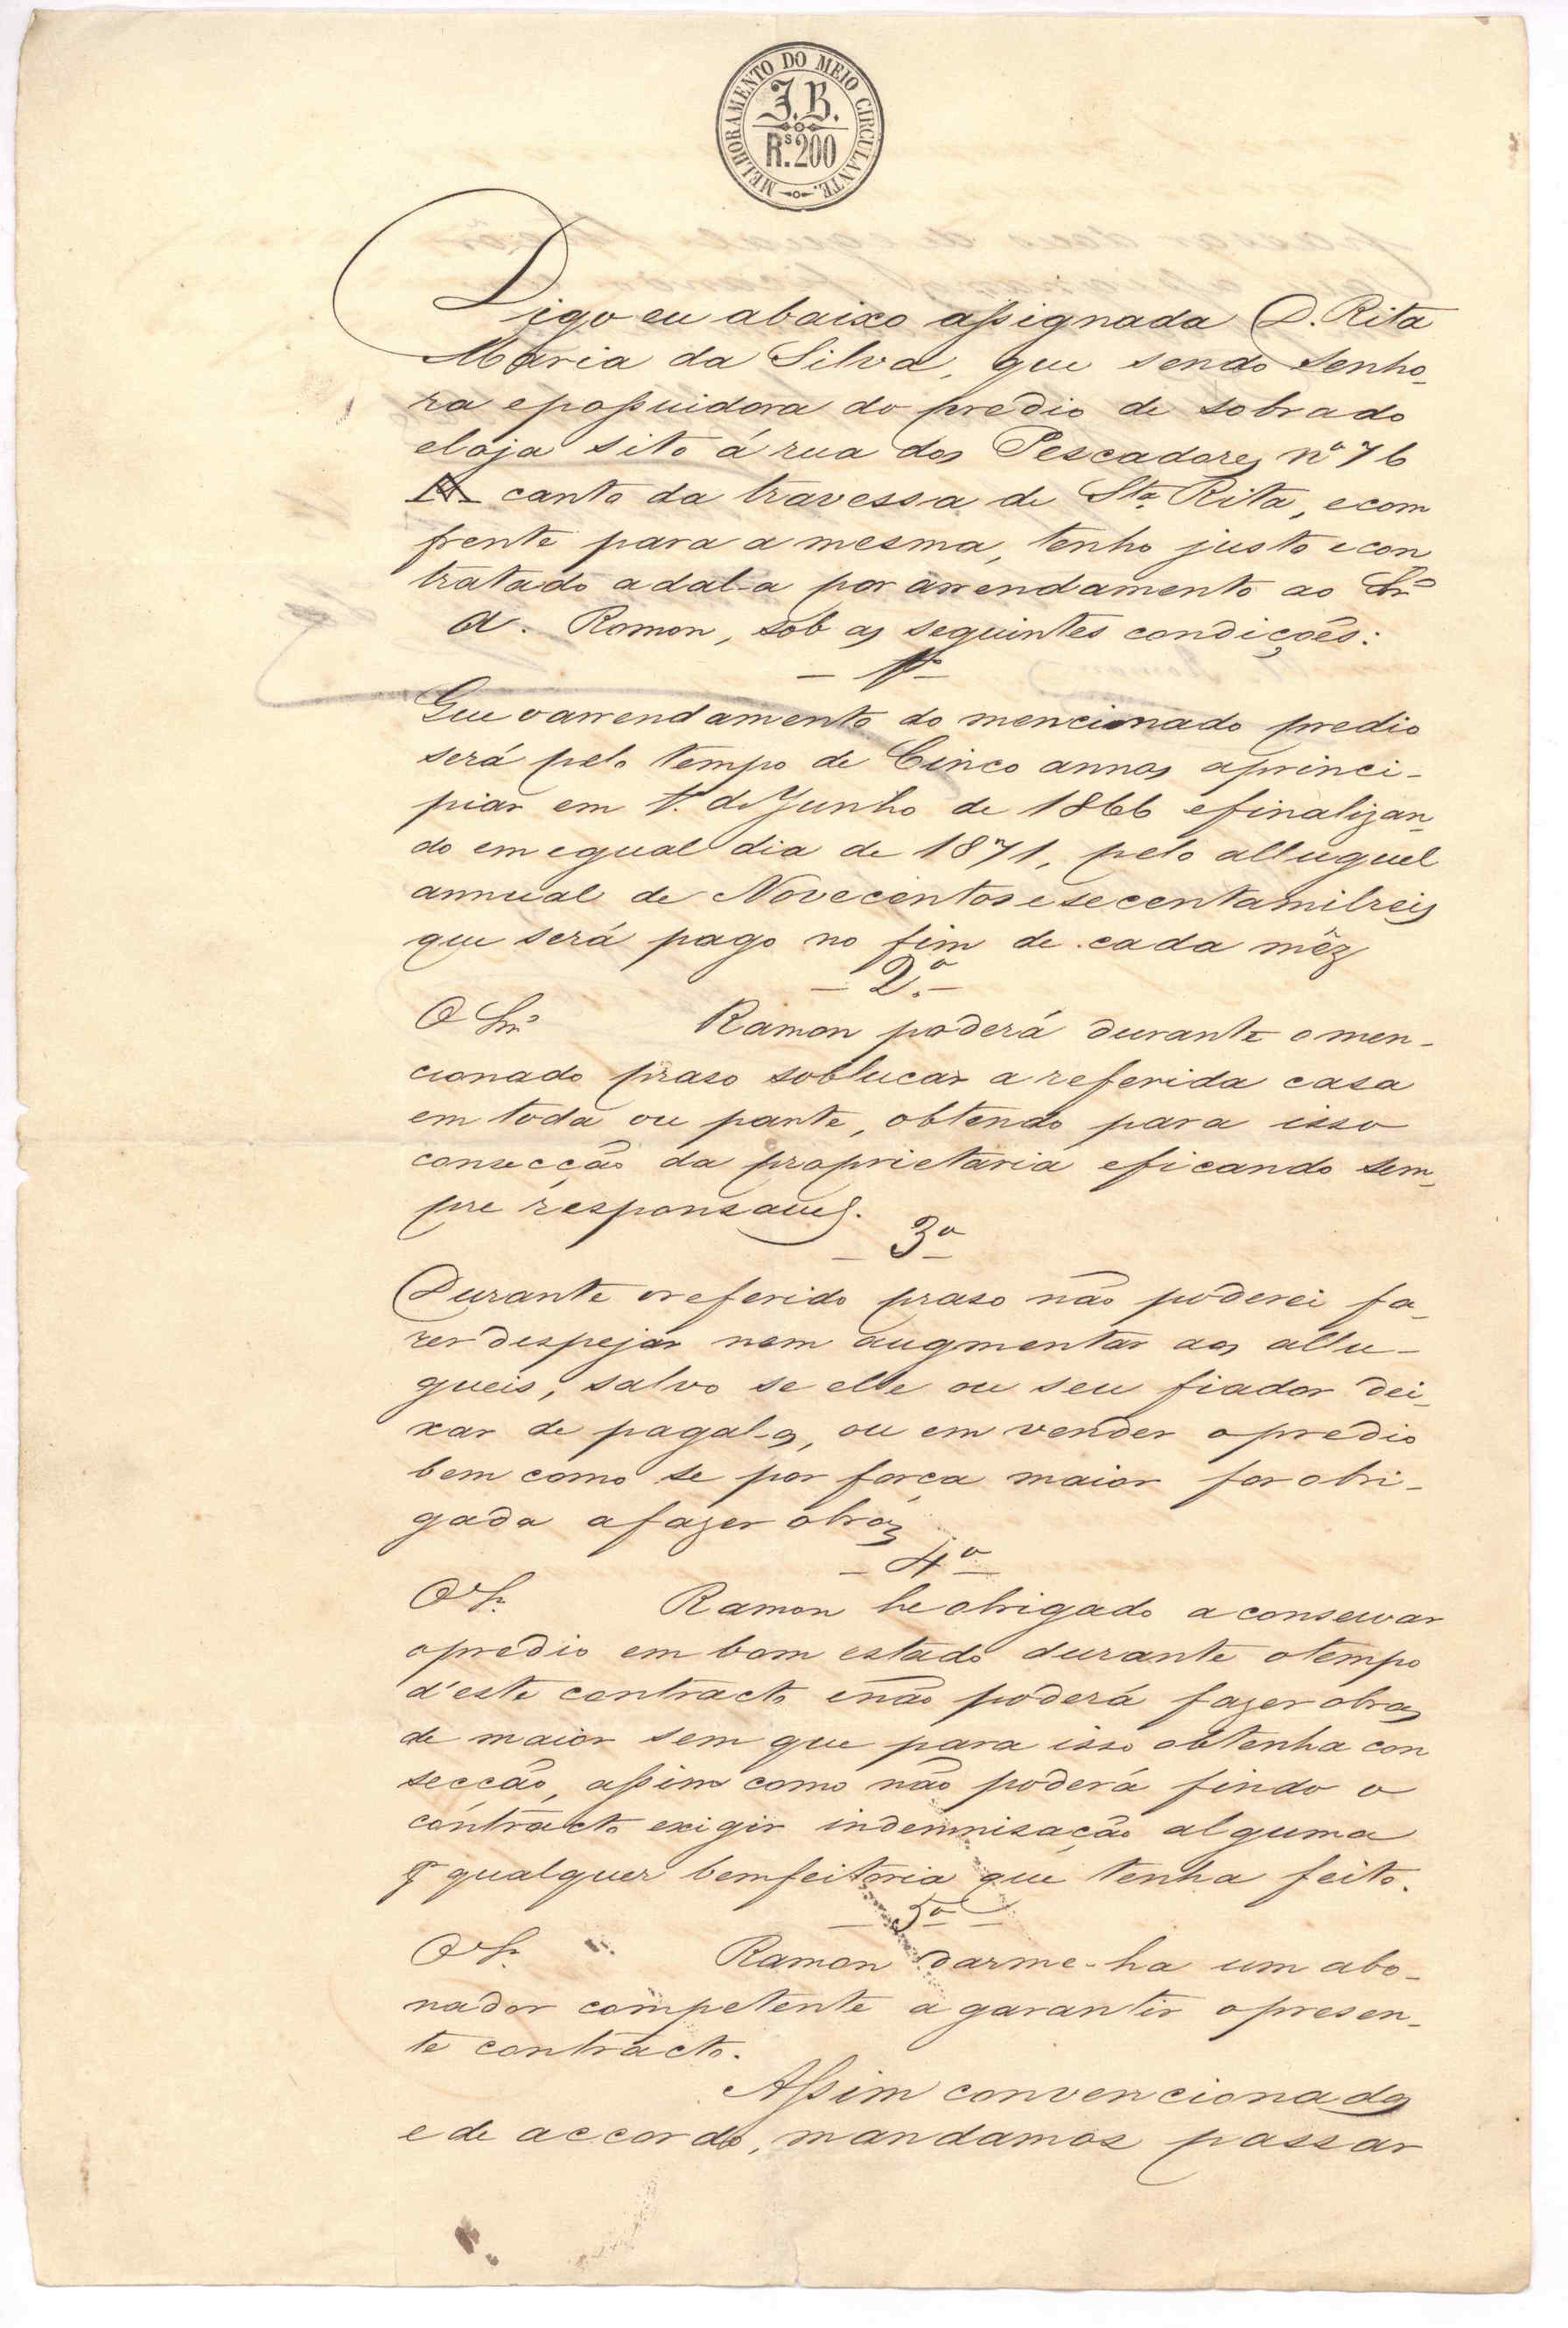 MELHORAMENTO DO MEIO CIRCULANTE.
J.B.
Rs.200
Digo eu abaixo assignada D. Rita
Maria da Silva, que sendo senho-
ra e possuidora do predio de sobrado
e loja sito á rua dos Pescadores nº 76
canto da travessa de Sta. Rita, e com
frente para a mesma, tenho justo e con
tratado a dal-a por arrendamento ao Snr.
A. Romon, sob as seguintes condições:
— 1ª —
Que o arrendamento do mencionado predio
será pelo tempo de Cinco annos a princi-
piar em 1º de Junho de 1866 e finalizan-
do em egual dia de 1871, pelo alluguel
annual de Novecentos e secenta mil reis
que será pago no fim de cada mêz
— 2ª —
O Snr. Ramon poderá durante o men-
cionado praso soblucar a referida casa
em toda ou parte, obtendo para isso
consecção da proprietaria e ficando sem-
pre responsavel.
— 3ª —
Durante o referido praso não poderei fa-
zer despejar nem augmentar aos allu-
gueis, salvo se elle ou seu fiador dei-
xar de pagal-os, ou em vender o predio
bem como se por força maior for obri-
gada a fazer obras
— 4ª —
O Sr. Ramon he obrigado a conservar
o predio em bom estado durante o tempo
d'este contracto e não poderá fazer obras
de maior sem que para isso obtenha con
secção, assim como não poderá findo o
contracto exigir indemnisação alguma
pr qualquer bemfeitoria que tenha feito.
— 5ª —
O Sr. Ramon darme-ha um abo-
nador competente a garantir o presen-
te contracto.
Assim convencionados
e de accordo, mandamos passar